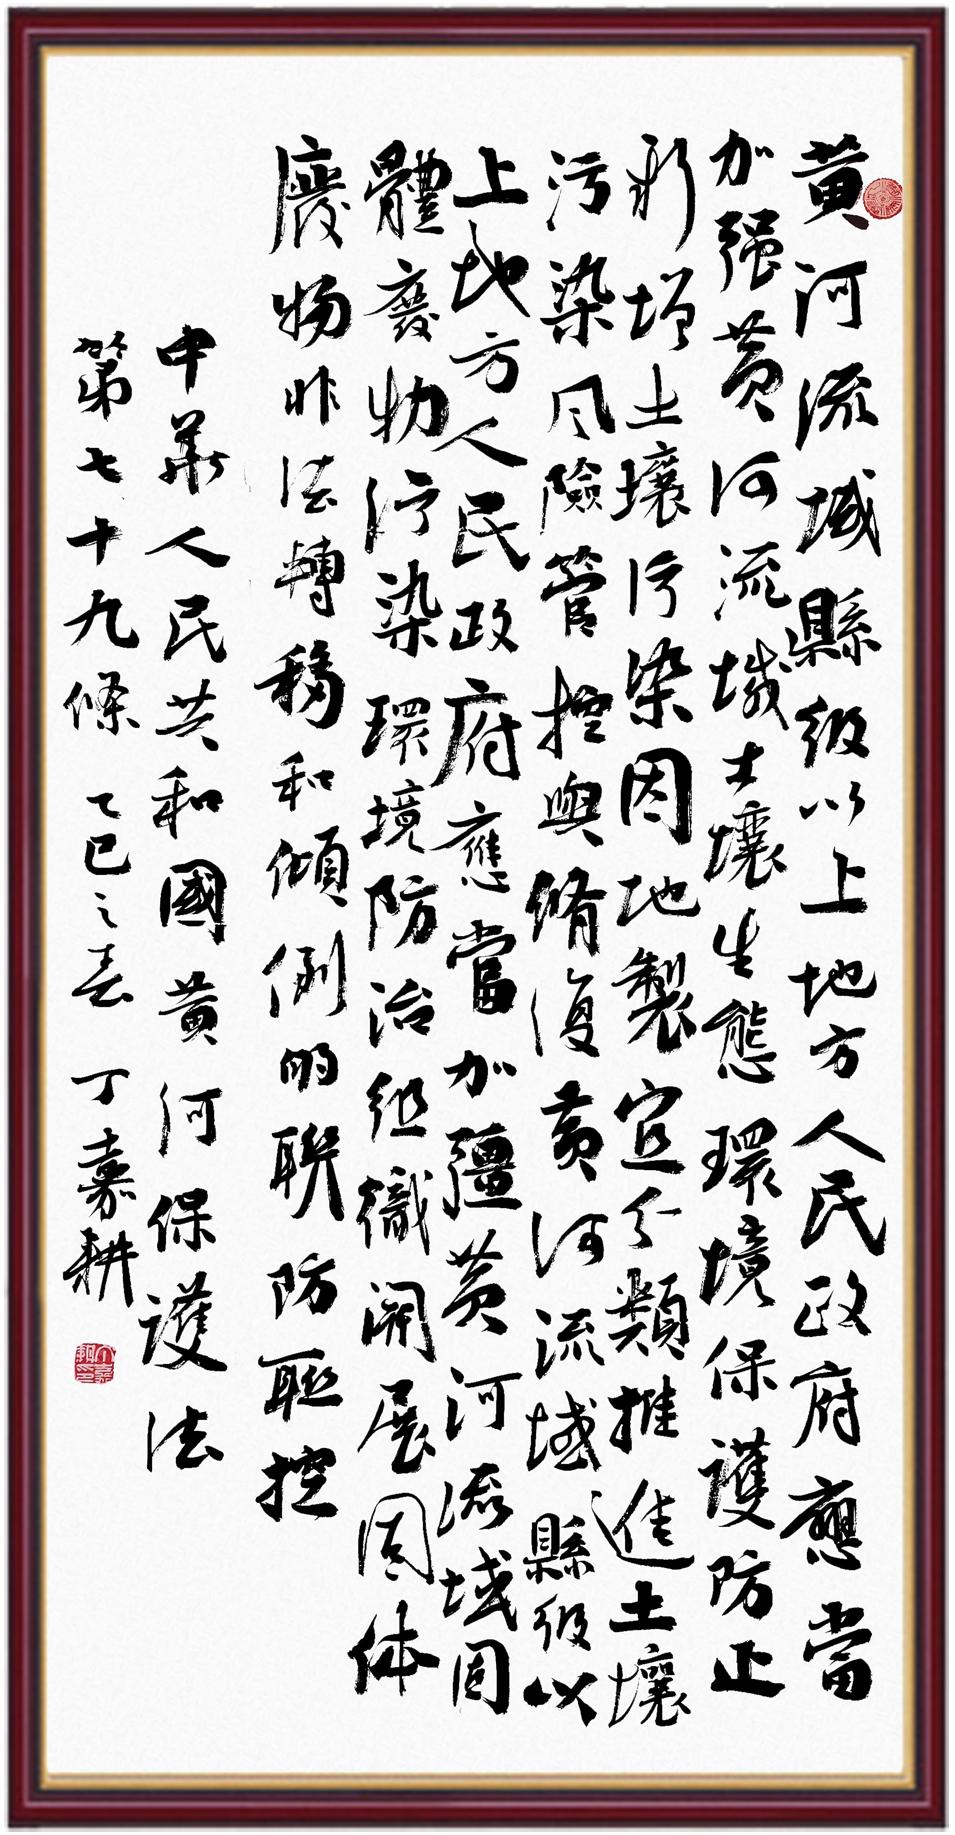 黄河流域縣級以上地方人民政府應當
加强黄河流域土壤生態環境保護防止
新增土壤污染因地製宜分類推進土壤
污染风險管控與脩復黄河流域縣级以
上地方人民政府應當加彊黄河流域固
體廢物污染環境防治组織開展固体
廢物非法轉移和傾倒的联防联控
中華人民共和國黄河保護法
第七十九條 乙巳之春 丁嘉耕